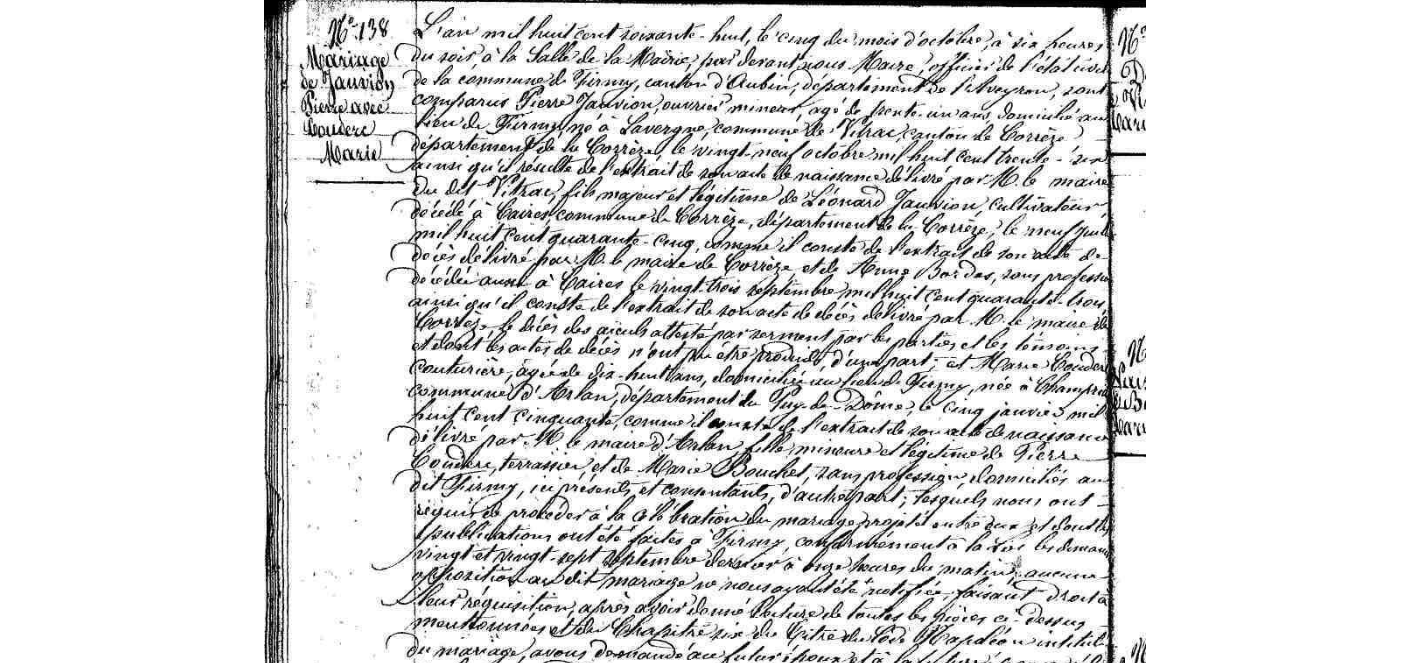 N° 138
Mariage
de Jauvion
Pierre avec
Couderc
Marie
L'an mil huit cent soixante-huit, le cinq du mois d'octobre, à six heures
du soir, à la Salle de la Mairie, par devant nous Maire, officier de l'état civil
de la commune de Firmy, canton d'Aubin, département de l'Aveyron, sont
comparus Pierre Jauvion, ouvrier mineur, agé de trente-un ans, domicilié au
lieu de Firmy, né à Lavergne, commune de Vitrac, canton de Corrèze
département de la Corrèze, le vingt-neuf octobre mil huit cent trente-six
ainsi qu'il résulte de l'extrait de son acte de naissance délivré par M. le maire
du dit Vitrac, fils majeur et légitime de Léonard Jauvion, cultivateur,
décédé à Caires, commune de Corrèze, département de la Corrèze, le neuf
mil huit cent quarante-cinq, comme il conste de l'extrait de son acte de
décès délivré par M. le maire de Corrèze et de Anne Bordas, sans profession
décédée aussi à Caires le vingt-trois septembre mil huit cent quarante-trois
ainsi qu'il conste de l'extrait de son acte de décès délivré par M. le maire de
Corrèze. le décès des aïeuls attesté par serment par les parties et les témoins
et dont les actes de décès n'ont pu être produits, d'une part; et Marie Couderc
couturière, agée de dix-huit ans, domiciliée au lieu de Firmy, née à
commune d'Arlan, département du Puy-de-Dôme, le cinq janvier mil
huit cent cinquante, comme il conste de l'extrait de son acte de naissance
délivré par M. le maire d'Arlan, fille mineure et légitime de Pierre
Couderc, terrassier, et de Marie Bouchet, sans profession, domiciliés au
dit Firmy, ici présents et consentants, d'autre part; lesquels nous ont
requis de procéder à la célébration du mariage projeté entre eux et dont les
publications ont été faites à Firmy conformément à la Loi les dimanches
vingt et vingt-sept septembre dernier à onze heures du matin; aucune
opposition au dit mariage ne nous ayant été notifiée, faisant droit à
leur réquisition, après avoir donné lecture de toutes les pièces ci-dessus
mentionnées et du Chapitre six du Titre du Code Napoléon intitulé
du mariage, avons demandé au futur époux et à la future